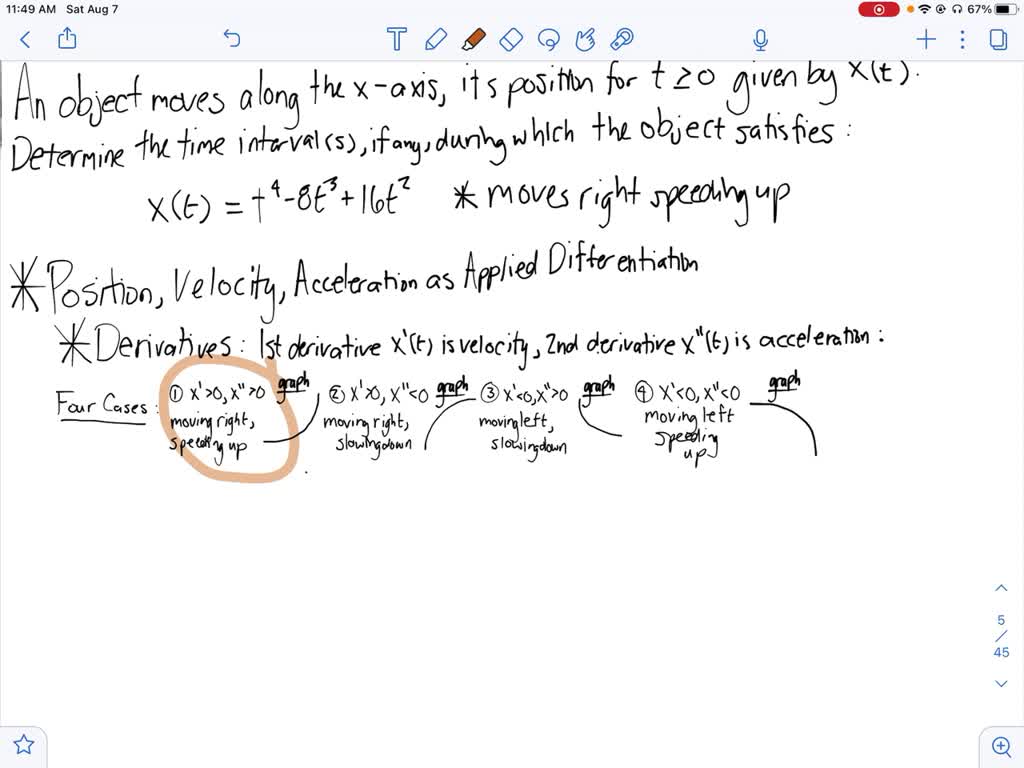 11:49 AM Sat Aug 7
67%
An object moves along the x-axis, its position for t ≥ 0 given by x(t).
Determine the time interval(s), if any, during which the object satisfies:
x(t) = t⁴-8t³+16t² * moves right speeding up
* Position, Velocity, Acceleration as Applied Differentiation
* Derivatives: 1st derivative x'(t) is velocity, 2nd derivative x"(t) is acceleration:
Four Cases: ① x'>0, x">0 graph ② x'>0, x"<0 graph ③ x'<0, x">0 graph ④ x'<0, x"<0 graph
moving right, moving right, moving left, moving left
speeding up slowing down slowing down speeding
up
5
/
45